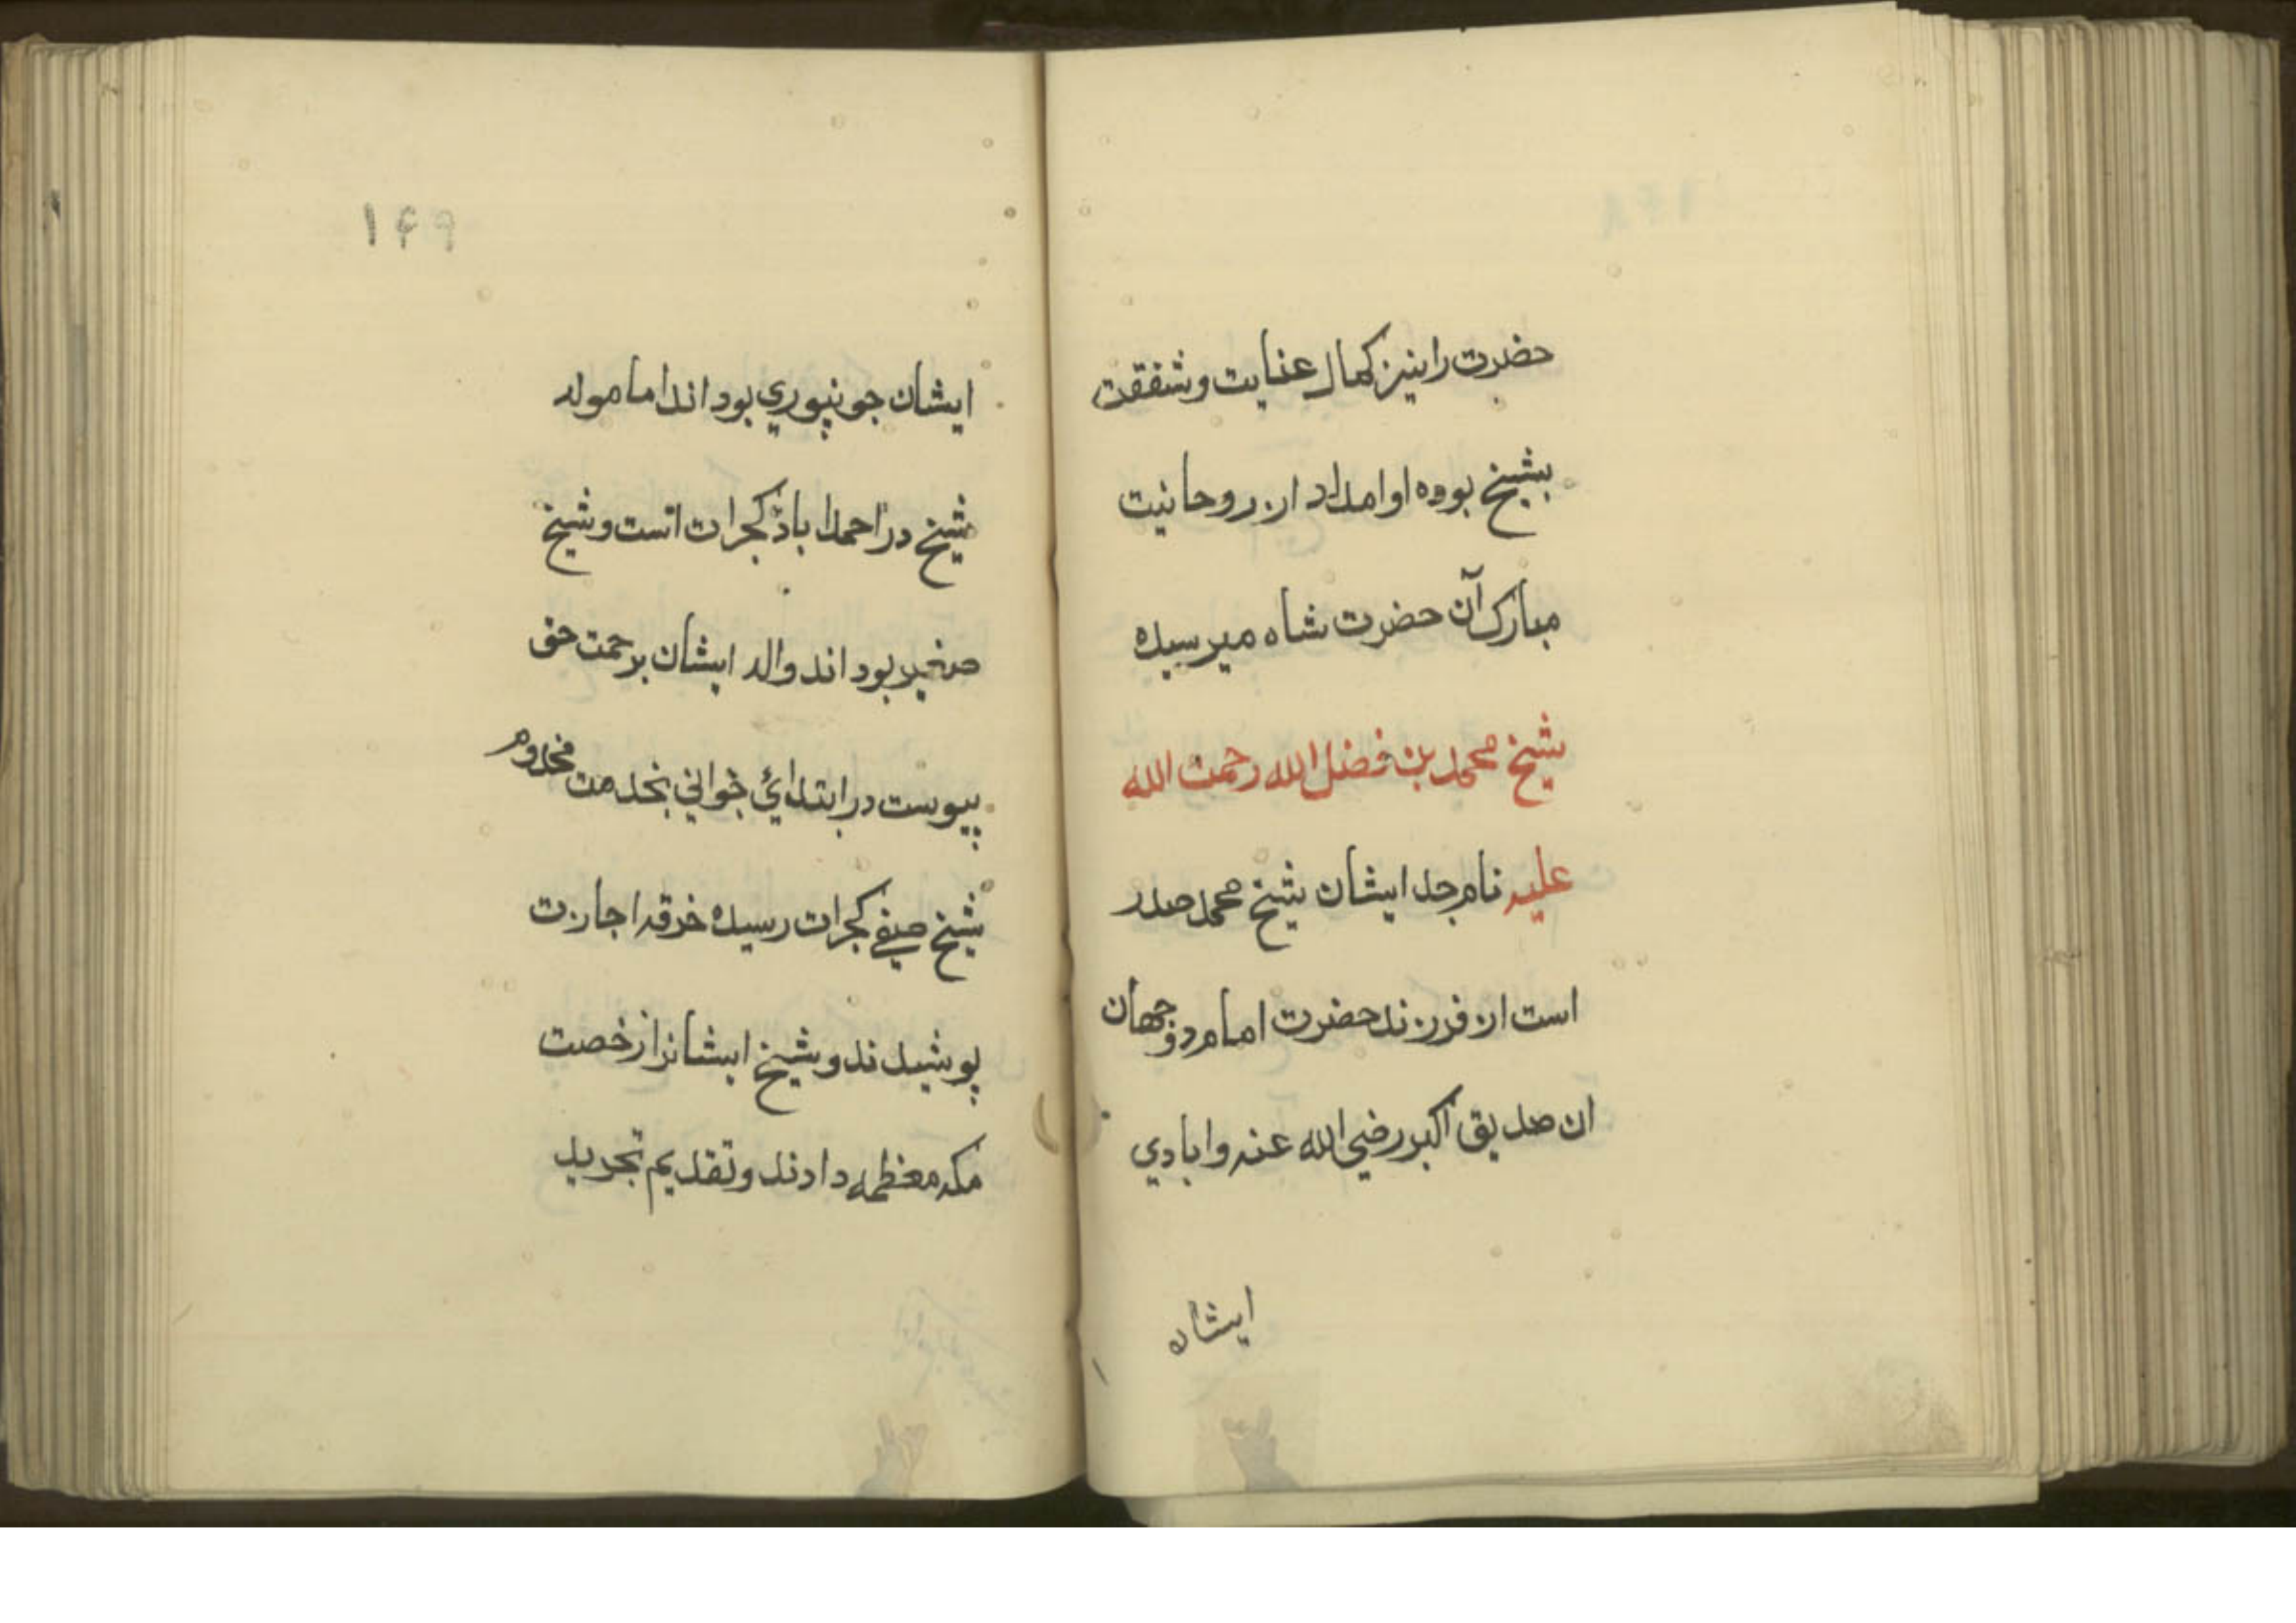 حضرت را نیز کمال عنایت و شفقت
بشیخ بوده او امداد از روحانیت
مبارک آن حضرت شاه میرسیده
شیخ محمد بن فضل الله رحمت الله
علیه نام جد ایشان شیخ محمد صدر
است از فرزند حضرت امام دوجهان
ان صدیق اکبر رضي الله عنه و ابادي
ایشان
۱۴۹
ایشان جونپوري بود اند اما مولد
شیخ در احمداباد کجرات است و شیخ
صغیر بود اند والد ایشان برحمت حق
پیوست در ابتدائي جواني بخدمت مخدوم
شیخ صفي کجرات رسیده خرقه اجازت
پوشیدند و شیخ ایشانرا رخصت
مکه معظمه دادند و تقدیم تجرید